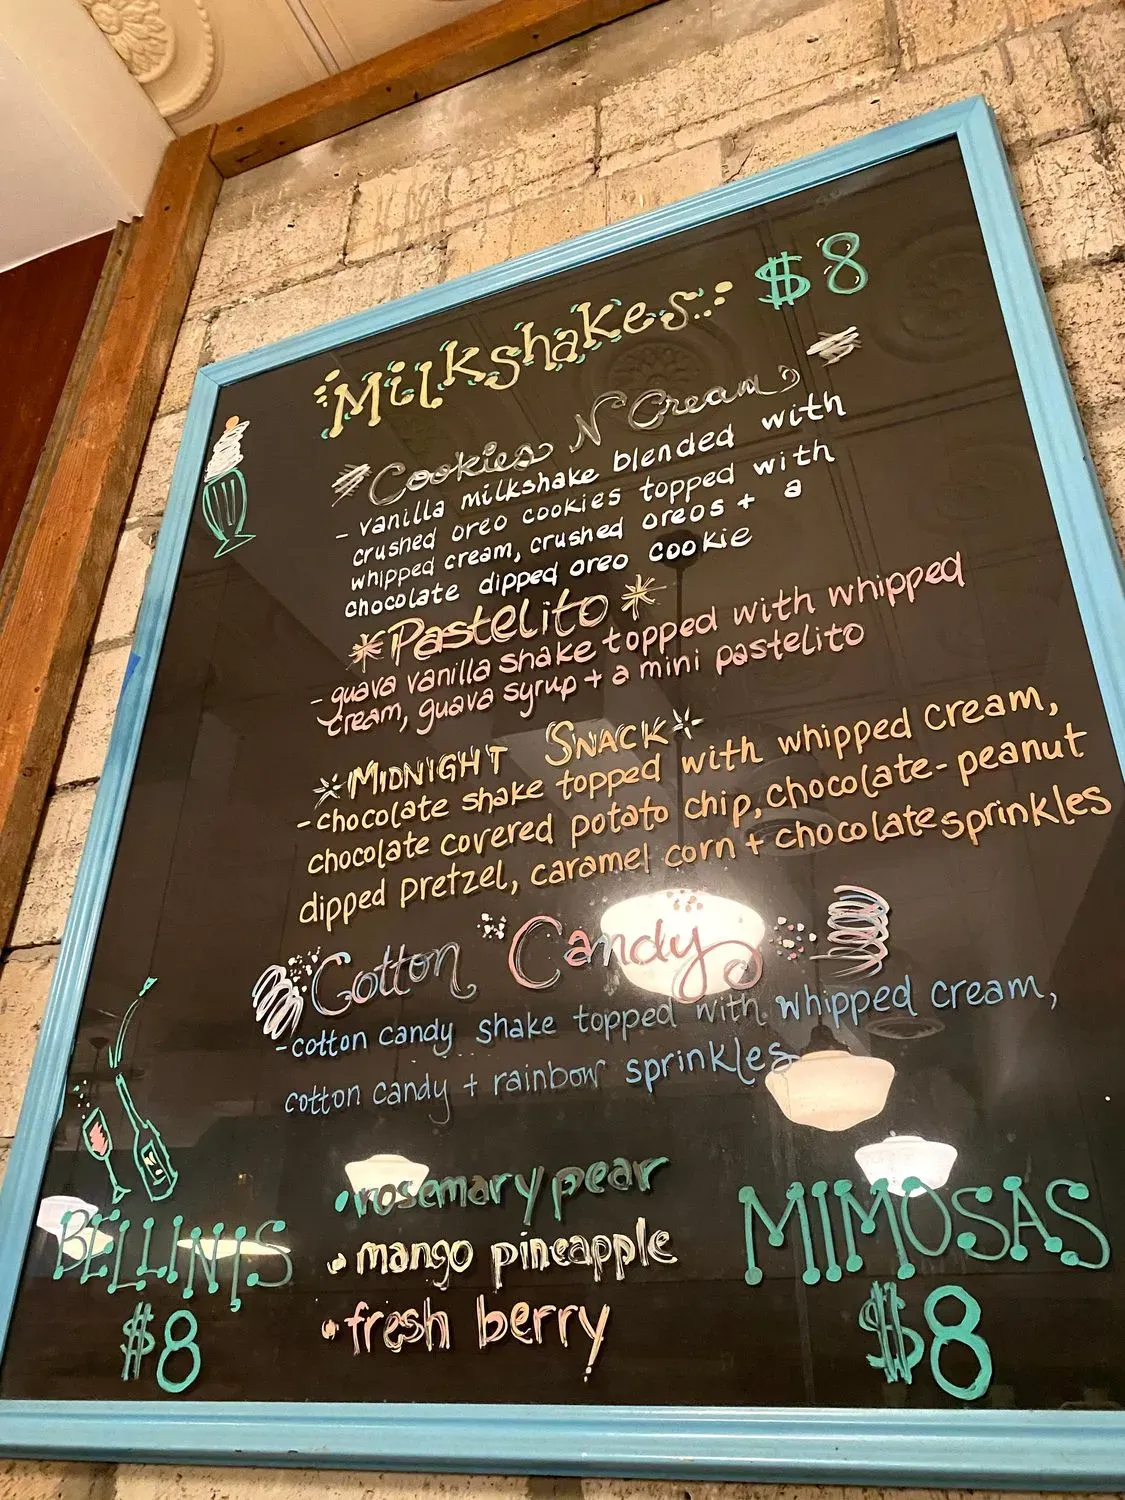 Milkshakes: $8
Cookies N Cream
- vanilla milkshake blended with
crushed oreo cookies topped with
whipped cream, crushed oreos + a
chocolate dipped oreo cookie
Pastelito
- guava vanilla shake topped with whipped
cream, guava syrup + a mini pastelito
MIDNIGHT SNACK
- chocolate shake topped with whipped cream,
chocolate covered potato chip, chocolate-peanut
dipped pretzel, caramel corn + chocolate sprinkles
Cotton Candy
- cotton candy shake topped with whipped cream,
cotton candy + rainbow sprinkles
BELLINIS
$8
• rosemary pear
• mango pineapple
• fresh berry
MIMOSAS
$8